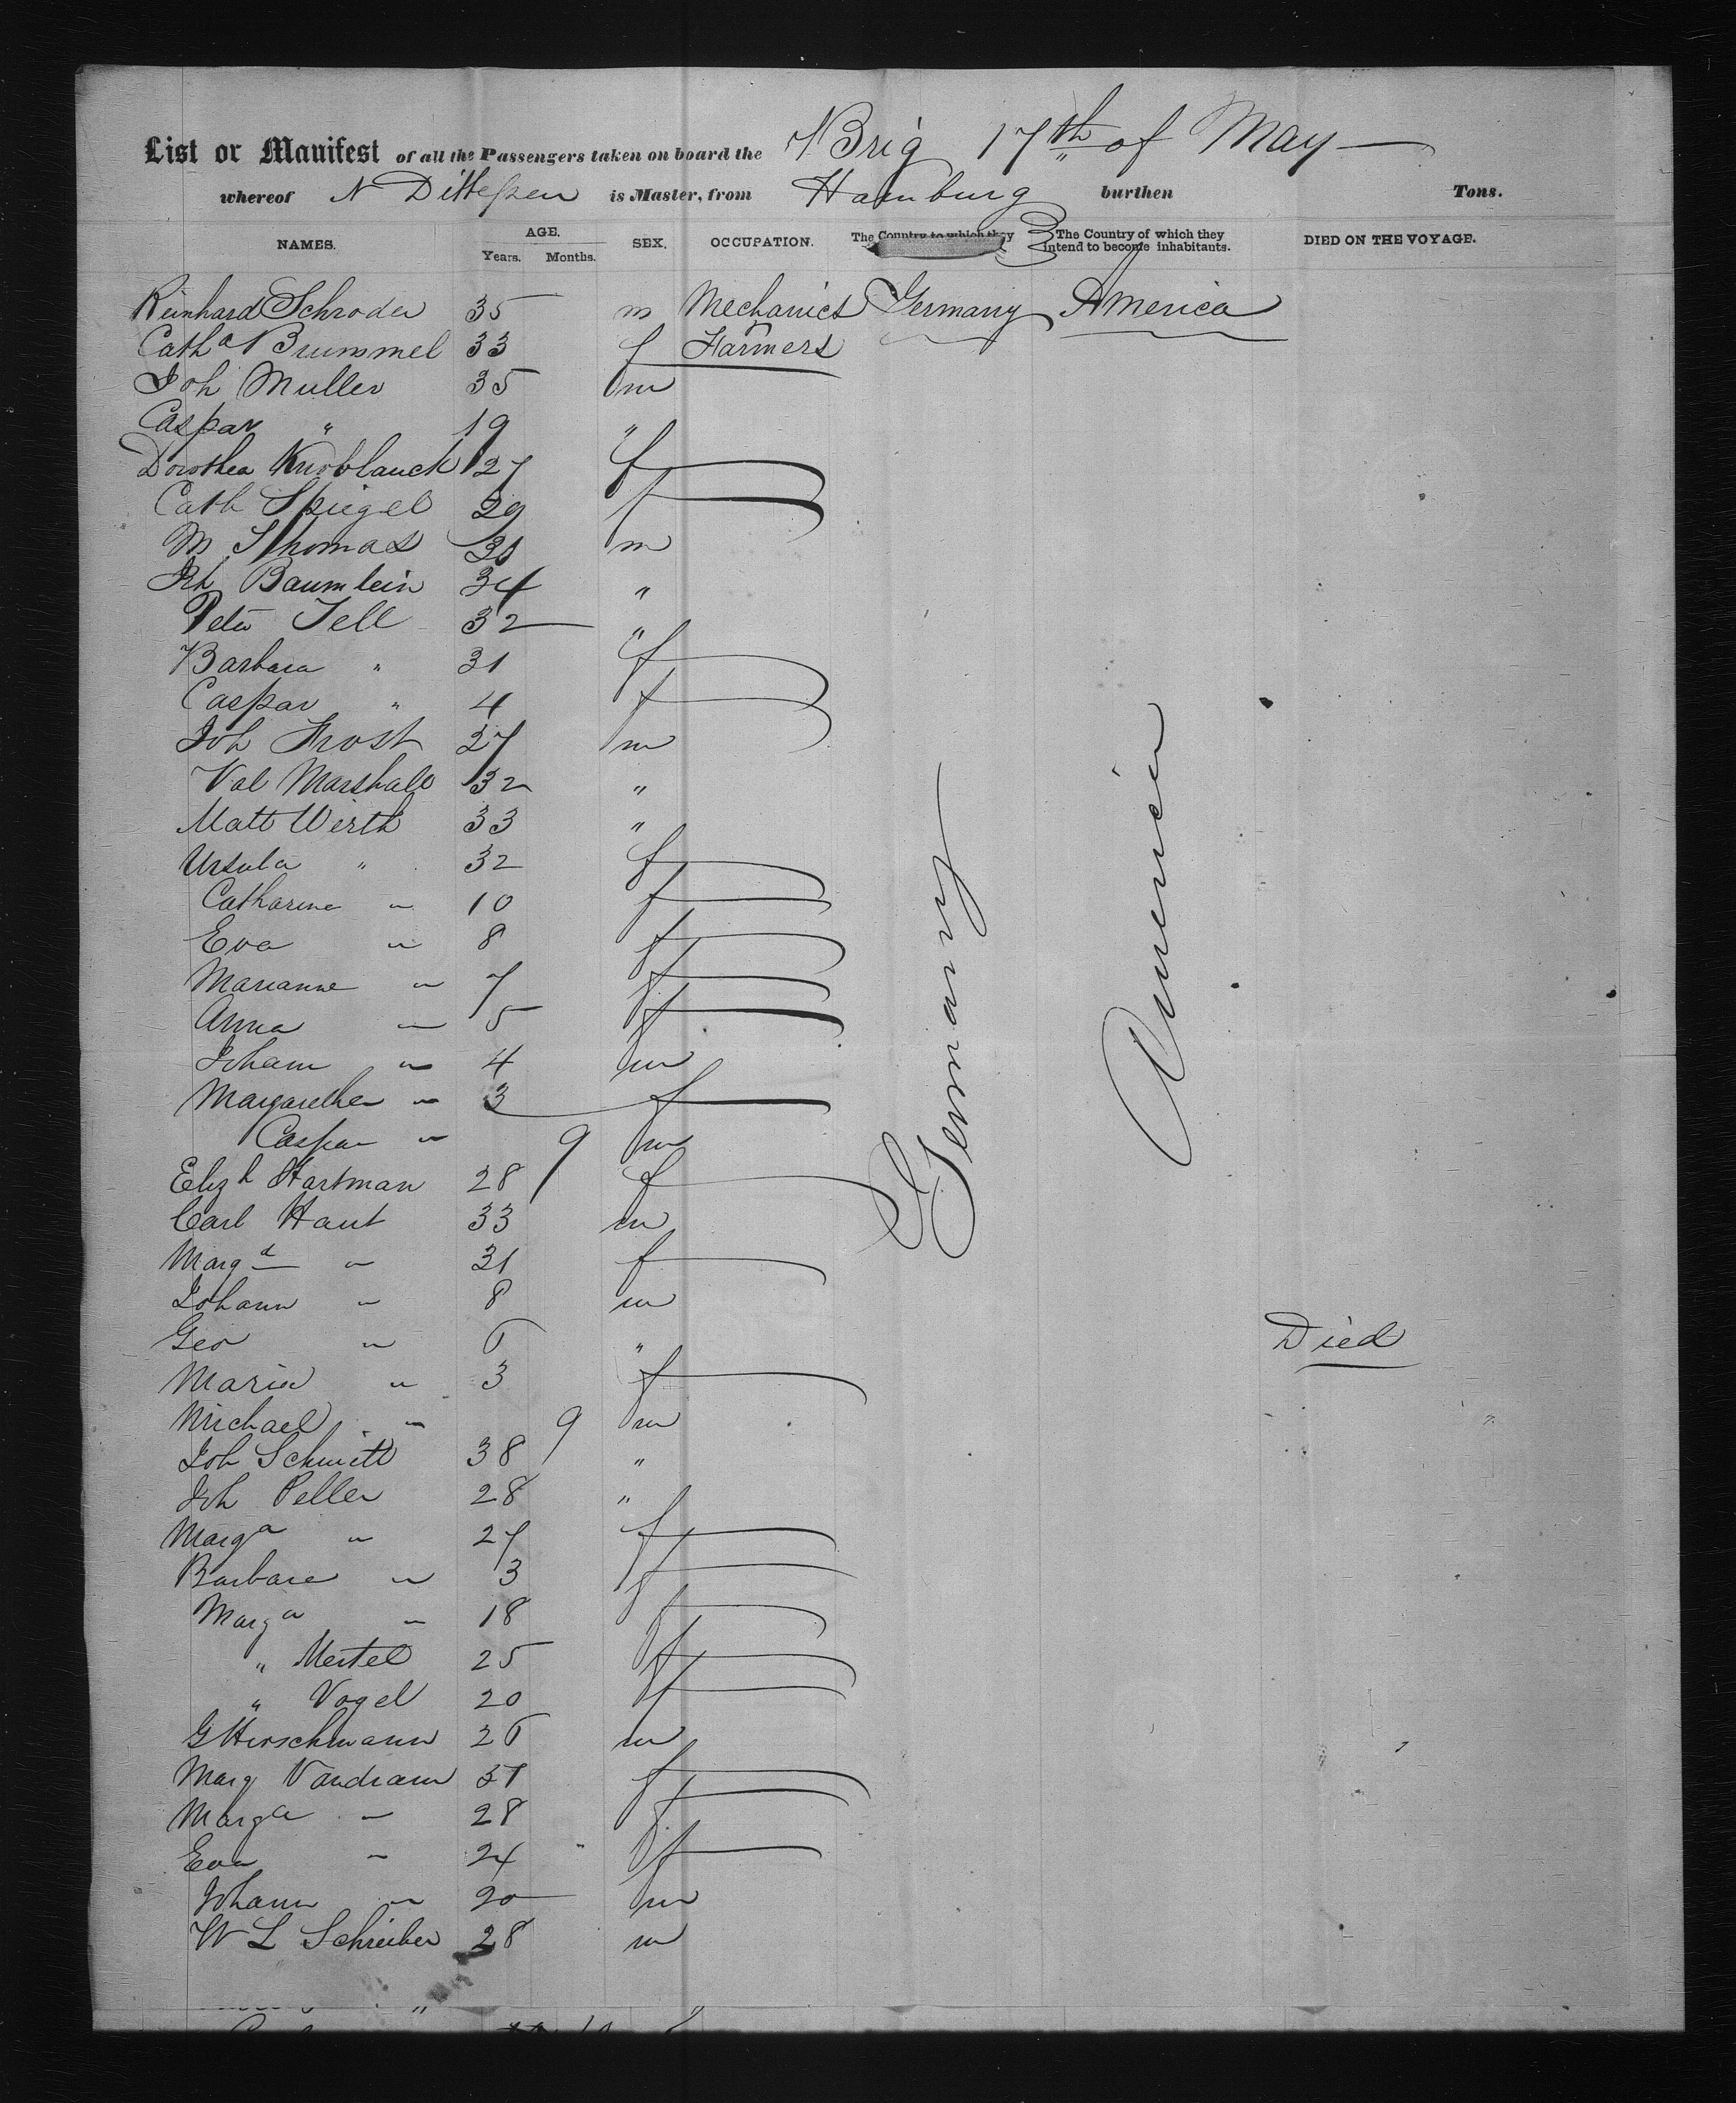 List or Manifest of all the Passengers taken on board the N Brig 17th of May
whereof N Dittessen is Master, from Hamburg burthen Tons.
NAMES. AGE. Years. Months. SEX. OCCUPATION. The Country to which they The Country of which they intend to become inhabitants. DIED ON THE VOYAGE.
Reinhard Schroder 35 m Mechanics Germany America
Cath a Brummel 33 f Farmers
Joh Muller 35 m
Caspar " 19 "
Dorothea Knoblauch 27 f
Cath Spiegel 29 f
M Thomas 31 m
Joh Baumlein 34 "
Peter Tell 32 "
Barbara " 31 f
Caspar " 4 f
Joh Frost 27 m
Val Marshall 32 "
Matt Wirth 33 "
Ursula " 32 f
Catharine " 10 f
Eva " 8 f
Marianne " 7 f
Anna " 5 f
Johann " 4 m
Margarethe " 3 f
Caspar " 9 m
Eliz h Hartman 28 f
Carl Haut 33 m
Marg a " 31 f
Johann " 8 m
Geo " 6 " Died
Maria " 3 f
Michael " 9 m
Joh Schmitt 38 "
Joh Peller 28 "
Marg a " 27 f
Barbara " 3 f
Marg a " 18 f
" Mertel 25 f
" Vogel 20 f
G Hirschmann 26 m
Marg Vandram 57 f
Marg a " 28 f
Eva " 24 f
Johann " 20 m
W L Schreiber 28 m
Germany
America